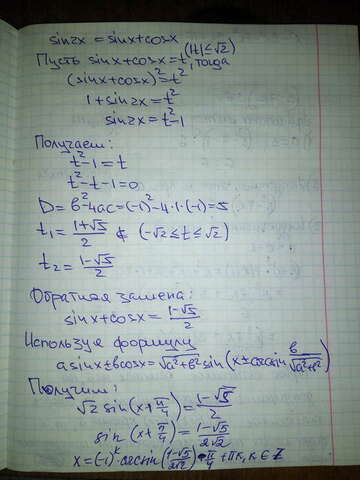 sin2x = sinx+cosx
Пусть sinx+cosx=t, (|t|≤√2) тогда
(sinx+cosx)²=t²
1+sin2x=t²
sin2x=t²-1
Получаем:
t²-1=t
t²-t-1=0
D=b²-4ac=(-1)²-4·1·(-1)=5
t₁=(1+√5)/2 ∉ (-√2≤t≤√2)
t₂=(1-√5)/2
Обратная замена:
sinx+cosx=(1-√5)/2
Используя формулу
a sinx±bcosx=√(a²+b²) sin(x±arcsin b/√(a²+b²))
Получим:
√2 sin(x+π/4)=(1-√5)/2
sin(x+π/4)=(1-√5)/(2√2)
x=(-1)^k·arcsin((1-√5)/(2√2))-π/4+πk, k∈Z